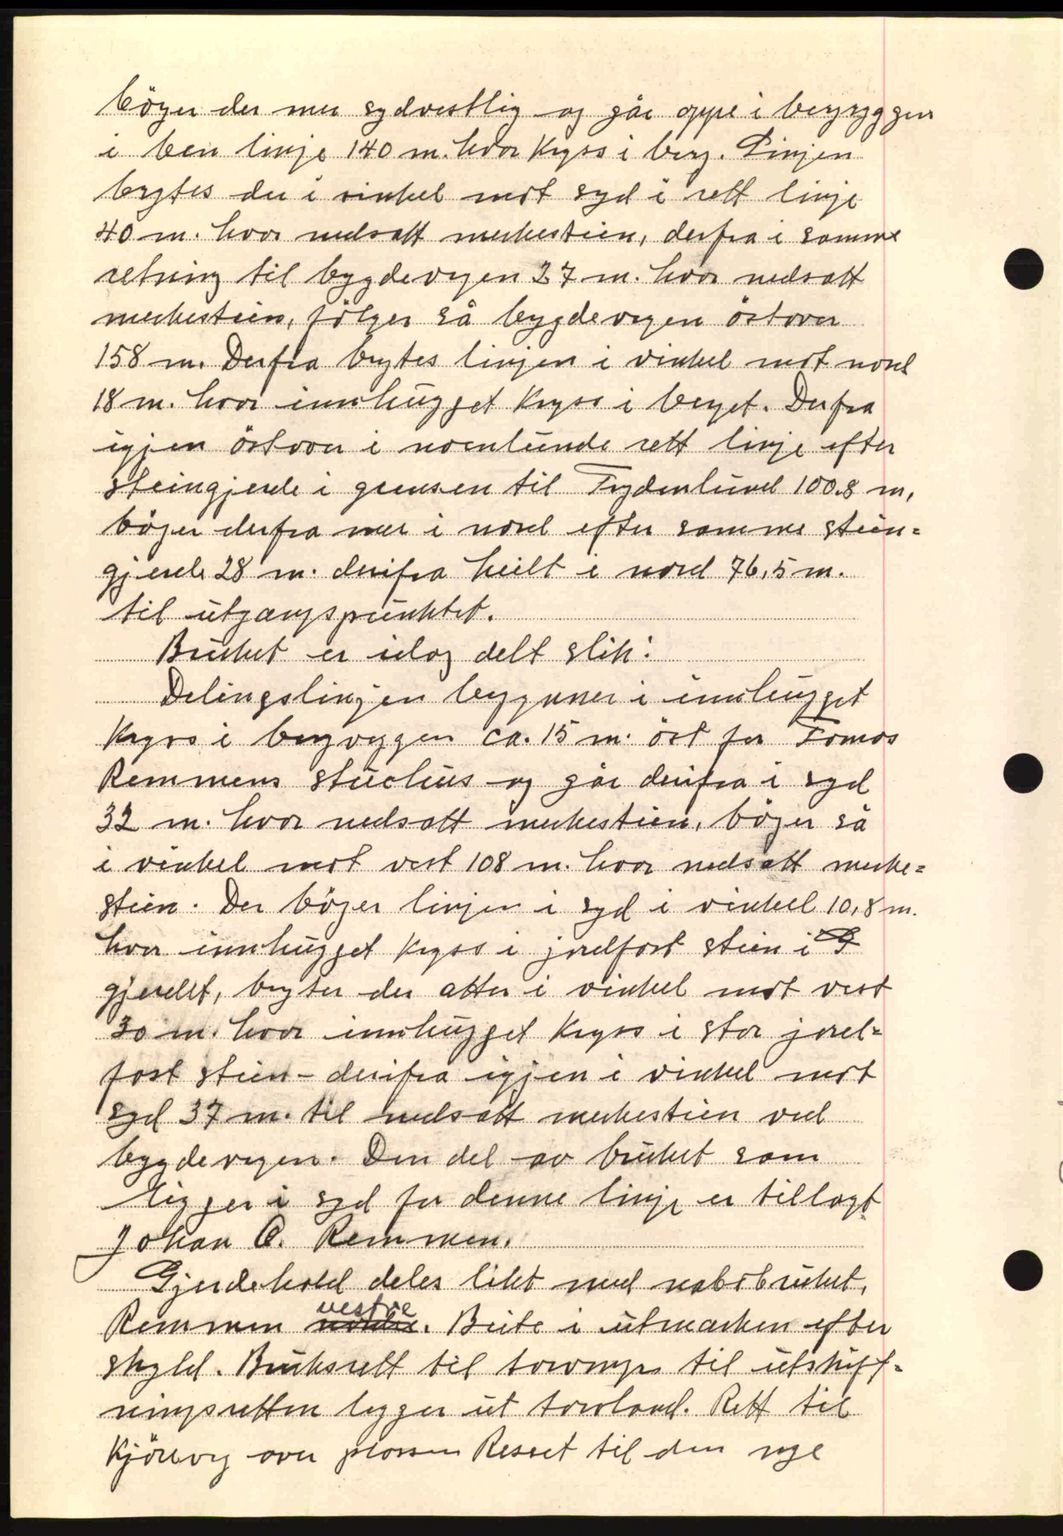 böyer der mer sydvestlig og går oppe i bergryggen
i ben linje 140 m. hvor kryss i berg. Linjen
brytes der i vinkel mot syd i rett linje
40 m. hvor nedsatt merkestein, derfra i samme
retning til bygdevegen 27 m. hvor nedsatt
merkestein, fölger så bygdevegen östover
158 m. Derfra brytes linjen i vinkel mot nord
18 m. hvor innhugget kryss i berget. Derfra
igjen östover i noenlunde rett linje efter
steingjerde i grensen til Frydenlund 100.8 m,
böyer derfra mer i nord efter samme stein=
gjerde 28 m. derifra heilt i nord 76,5 m.
til utgangspunktet.
Bruket er idag delt slik:
Delingslinjen begynner i innhugget
kryss i bergveggen ca. 15 m. öst for Tomas
Remmens stuehus og går derifra i syd
32 m. hvor nedsatt merkestein, böyer så
i vinkel mot vest 108 m. hvor nedsatt merke=
stein. Der böyer linjen i syd i vinkel 10,8 m.
hvor innhugget kryss i jordfast stein i
gjerdet, bryter der atter i vinkel mot vest
30 m. hvor innhugget kryss i stor jord=
fast stein - derifra igjen i vinkel mot
syd 37 m. til nedsatt merkestein ved
bygdevegen. Den del av bruket som
ligger i syd for denne linje er tillagt
Johan O. Remmen.
Gjerdehold deles likt med nabobruket,
Remmen vestre. Beite i utmarken efter
skyld. Bruksrett til torvmyr til utskift=
ningsretten legger ut torvland. Rett til
kjöreveg over plassen Resset til den nye